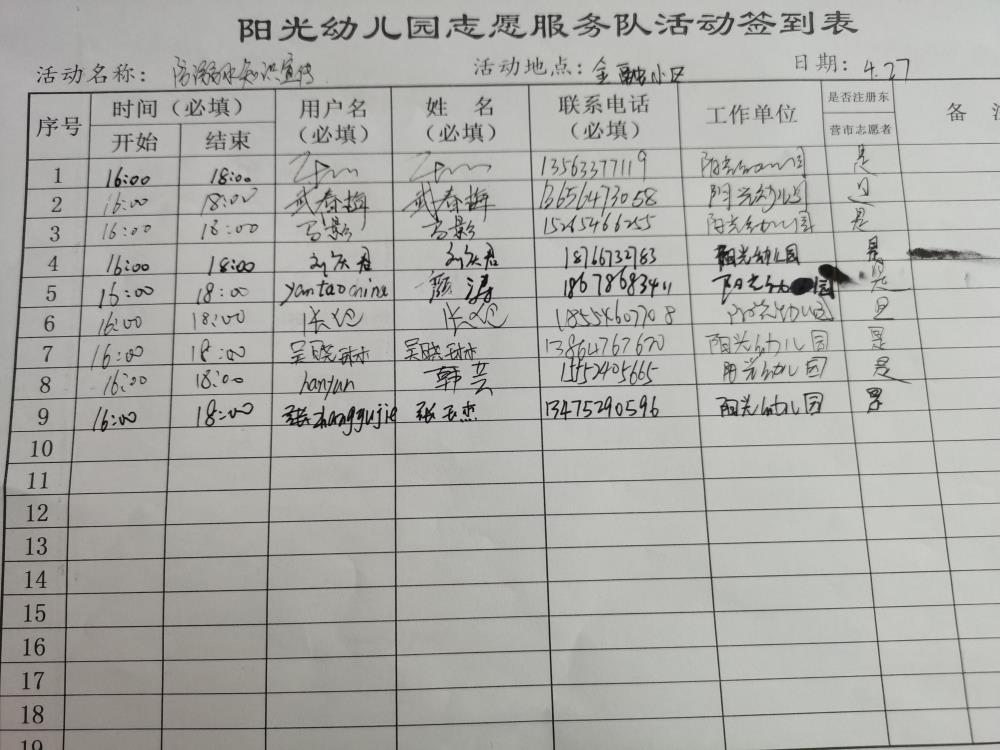 阳光幼儿园志愿服务队活动签到表
活动名称: 知识宣传 活动地点: 金融小区 日期: 4.27
序号 时间(必填) 用户名(必填) 姓名(必填) 联系电话(必填) 工作单位 是否注册东营市志愿者 备
开始 结束
1 16:00 18:00 13563377119 阳光幼儿园 是
2 16:00 18:00 武春梅 武春梅 13656473058 阳光幼儿园 是
3 16:00 18:00 马影 马影 15265466255 阳光幼儿园 是
4 16:00 18:00 18766732783 阳光幼儿园 是
5 16:00 18:00 yantaochina 颜涛 18678683411 阳光幼 园 是
6 16:00 18:00 18554607708 阳光幼儿园 是
7 16:00 18:00 吴晓琳 吴晓琳 13864767620 阳光幼儿园 是
8 16:00 18:00 hanyun 韩芸 15552405665 阳光幼儿园 是
9 16:00 18:00 张zhangyujie 张玉杰 13475290596 阳光幼儿园 是
10
11
12
13
14
15
16
17
18
19